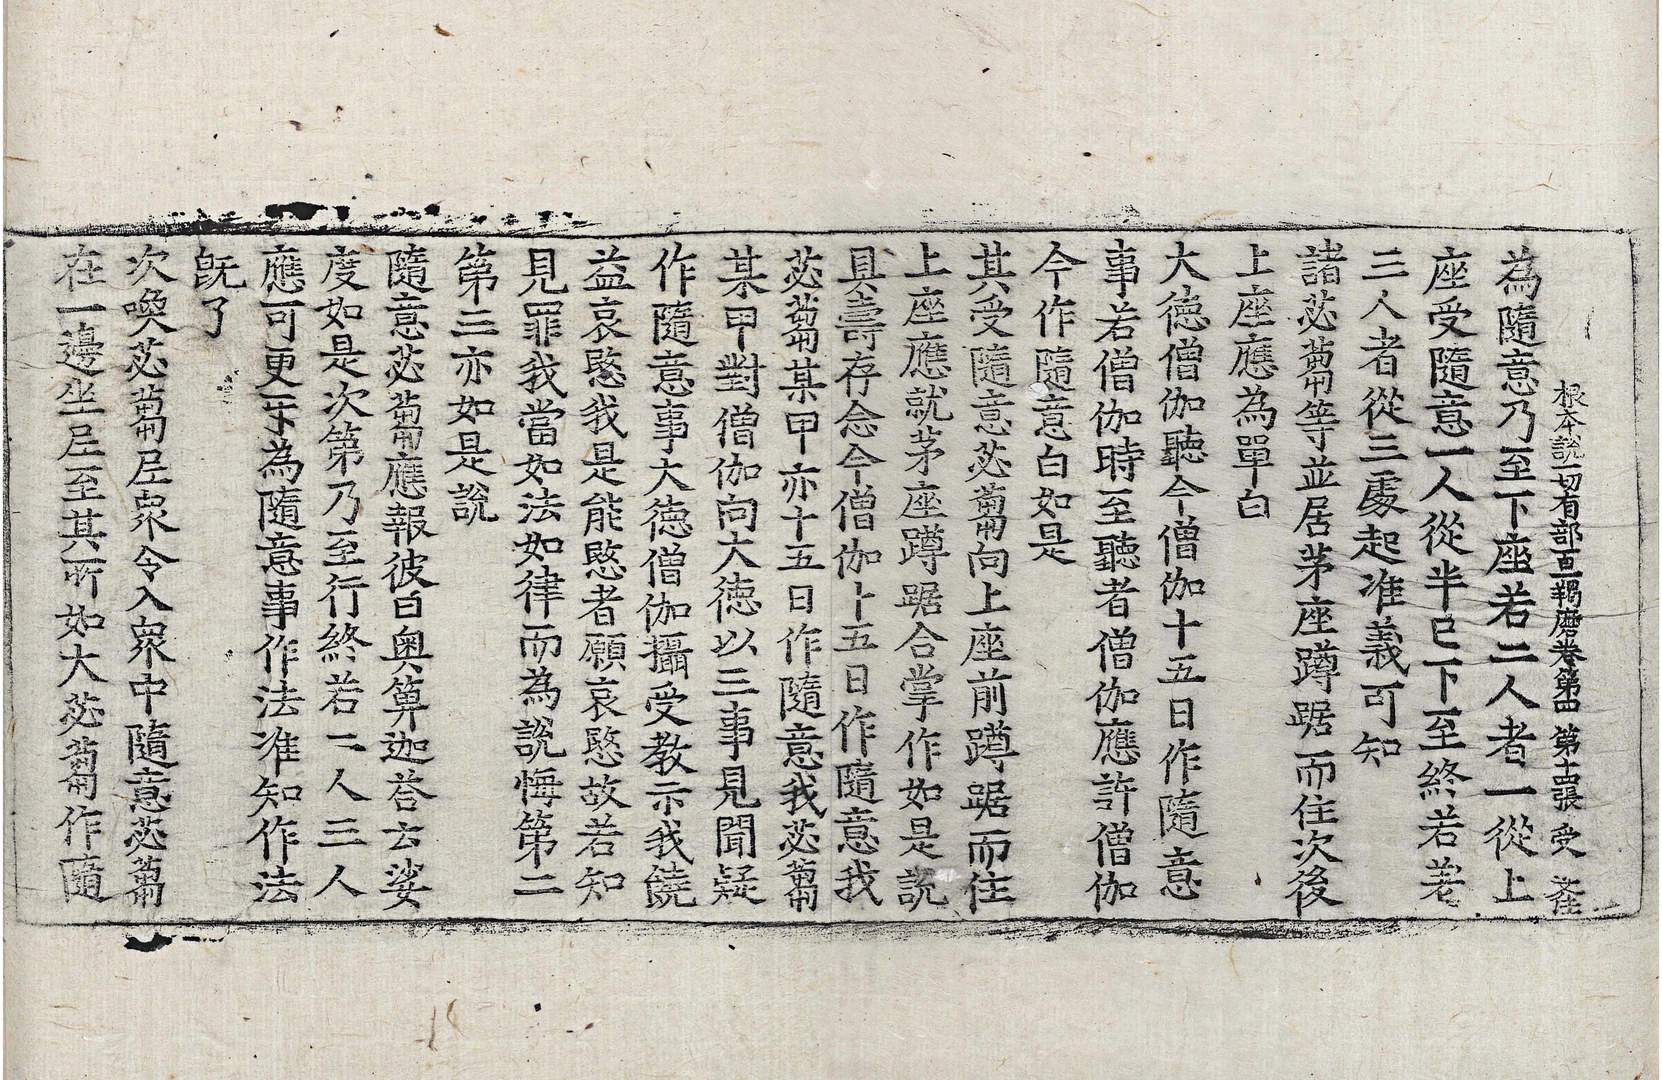 根本說一切有部百一羯磨卷第四 第十四張 受
為隨意乃至下座若二人者一從上
座受隨意一人從半已下至終若差
三人者從三處起准義可知
諸苾蒭等並居茅座蹲踞而住次後
上座應為單白
大德僧伽聽今僧伽十五日作隨意
事若僧伽時至聽者僧伽應許僧伽
今作隨意白如是
其受隨意苾蒭向上座前蹲踞而住
上座應就茅座蹲踞合掌作如是說
具壽存念今僧伽十五日作隨意我
苾蒭某甲亦十五日作隨意我苾蒭
某甲對僧伽向大德以三事見聞疑
作隨意事大德僧伽攝受教示我饒
益哀愍我是能愍者願哀愍故若知
見罪我當如法如律而為說悔第二
第三亦如是說
隨意苾蒭應報彼曰奧箄迦荅云娑
度如是次第乃至行終若二人三人
應可更互為隨意事作法准知作法
既了
次喚苾蒭尼衆令入衆中隨意苾蒭
在一邊坐尼至其所如大苾蒭作隨